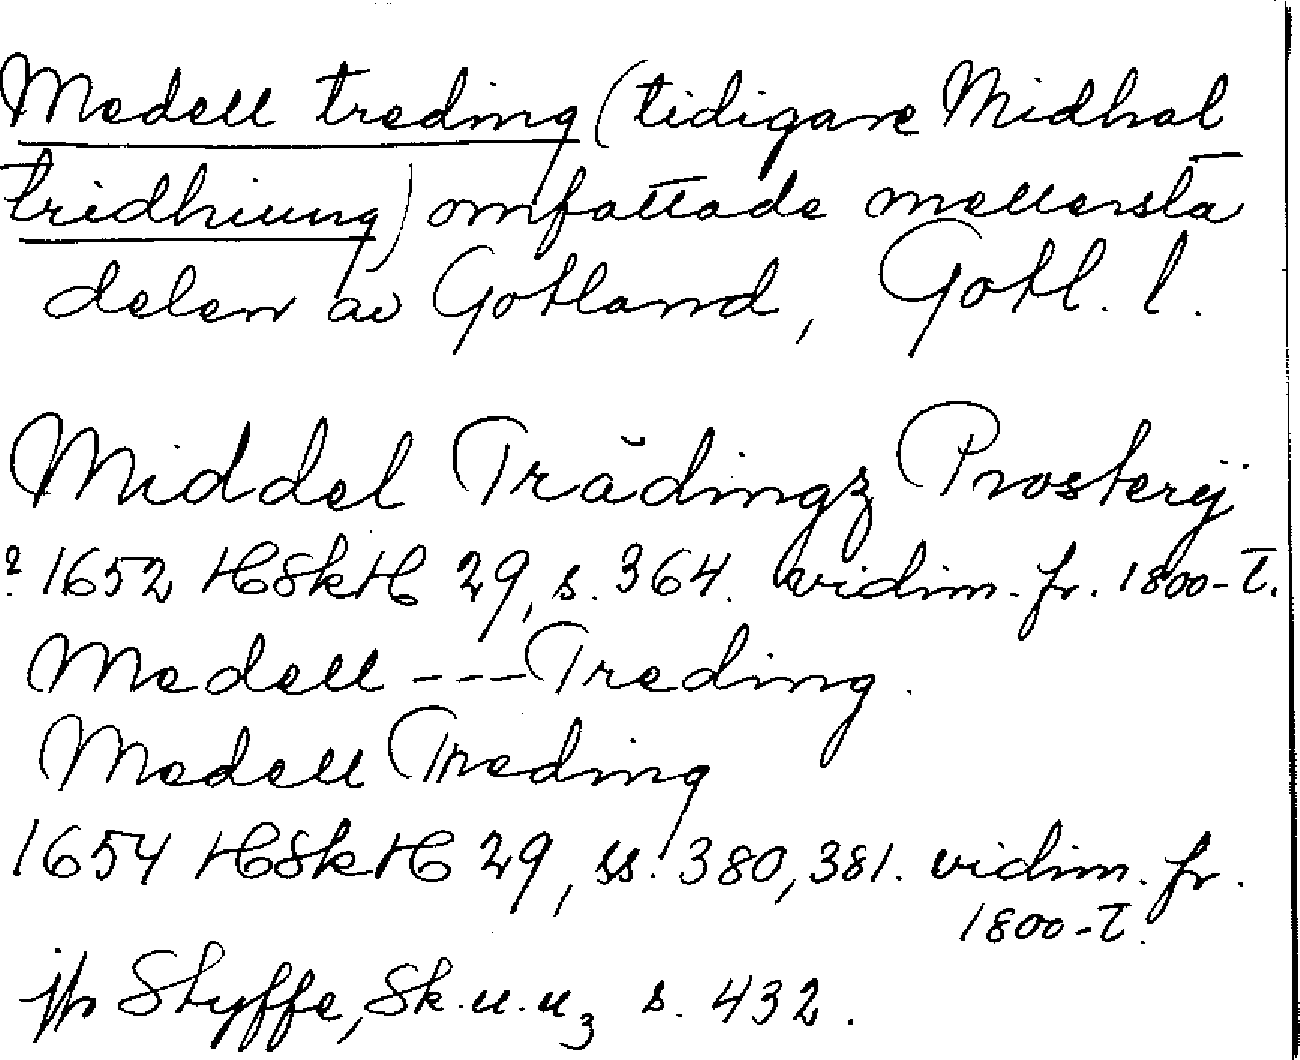 Medell treding (tidigare Midhal
tridhiung) omfattade mellersta
delen av Gotland, Gotl. l.
Middel Trädingz Prosterij
? 1652 HSkH 29, s. 364. vidim. fr. 1800-t.
Medell --- Treding.
Medell Treding
1654 HSkH 29, ss. 380, 381. vidim. fr.
1800-t.
jfr Styffe, Sk. u. u₃ s. 432.